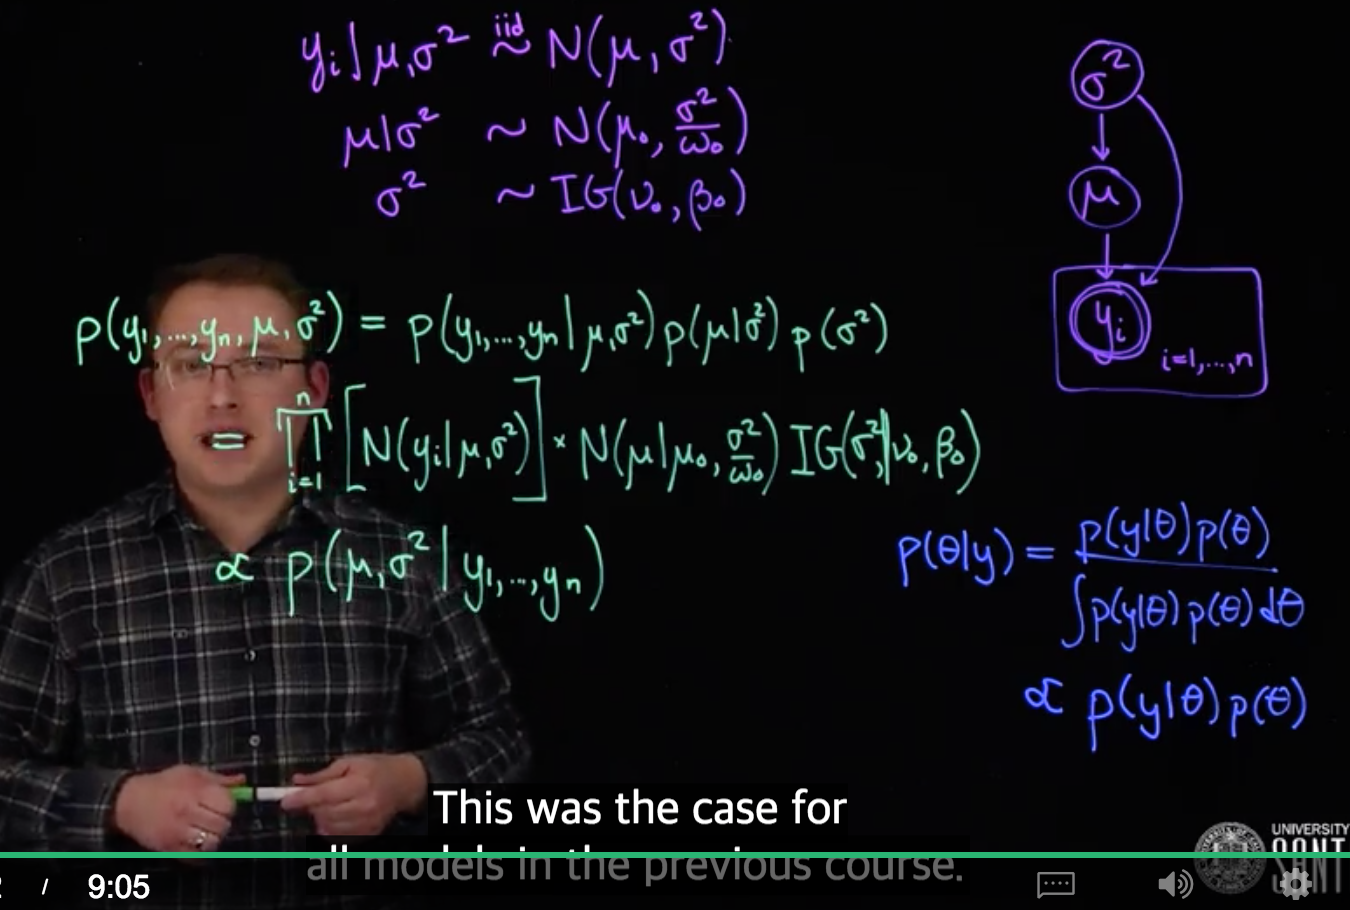 yᵢ | μ, σ² iid ~ N(μ, σ²)
μ | σ² ~ N(μ₀, σ²/ω₀)
σ² ~ IG(ν₀, β₀)
σ²
μ
yᵢ
i=1,...,n
p(y₁,...,yₙ, μ, σ²) = p(y₁,...,yₙ | μ, σ²) p(μ | σ²) p(σ²)
= ∏ᵢ₌₁ⁿ [N(yᵢ | μ, σ²)] × N(μ | μ₀, σ²/ω₀) IG(σ² | ν₀, β₀)
∝ p(μ, σ² | y₁,...,yₙ)
p(θ|y) = p(y|θ)p(θ) / ∫p(y|θ)p(θ)dθ
∝ p(y|θ)p(θ)
This was the case for
all models in the previous course.
UNIVERSITY
/ 9:05